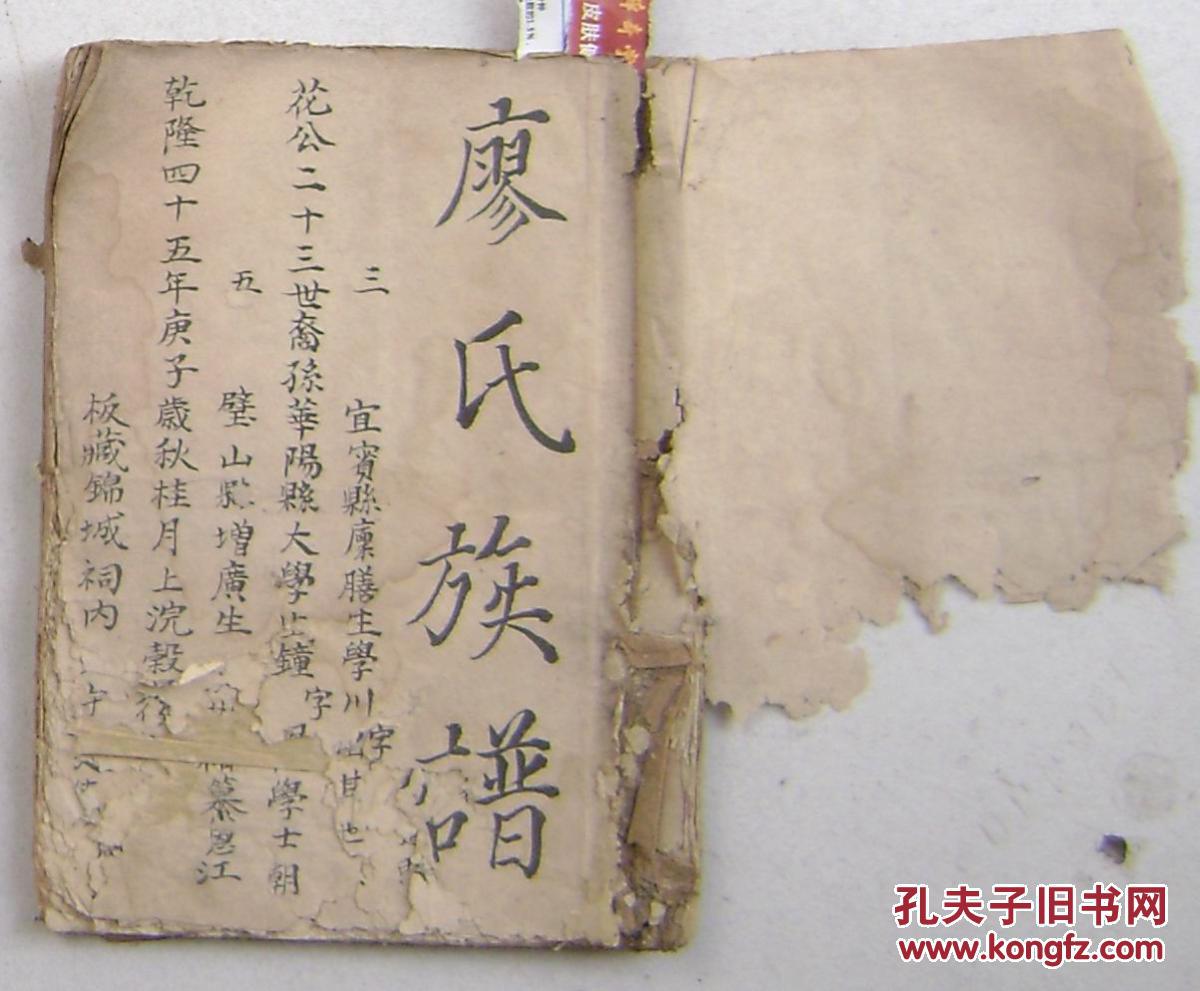 廖氏族譜
三
宜賓縣廩膳生學川字
花公二十三世裔孫華陽縣大學生鐘字學士朝
五
璧山縣增廣生江
乾隆四十五年庚子歲秋桂月上浣穀
板藏錦城祠内
皮肤
孔夫子旧书网
www.kongfz.com